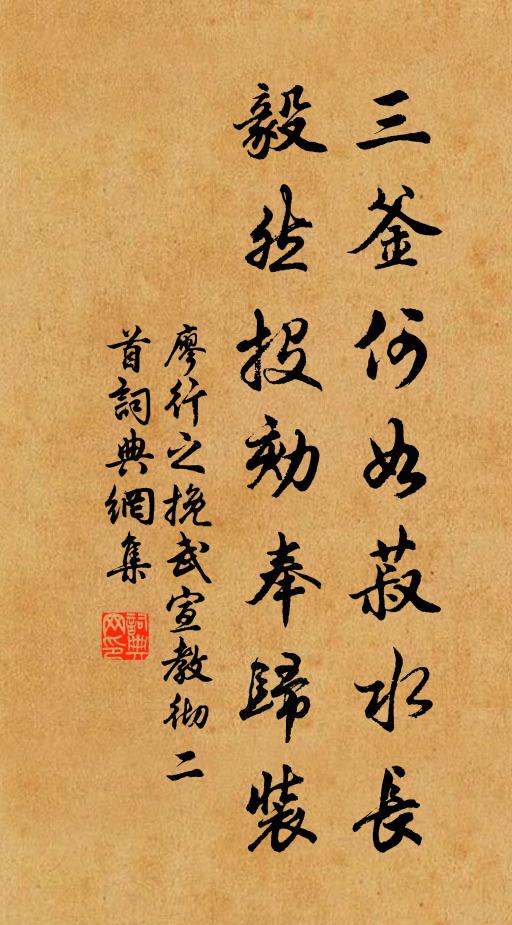 三釜何如菽水長
毅然投劾奉歸裝
廖行之挽武宣教彻二
首詞典網集
詞典網印